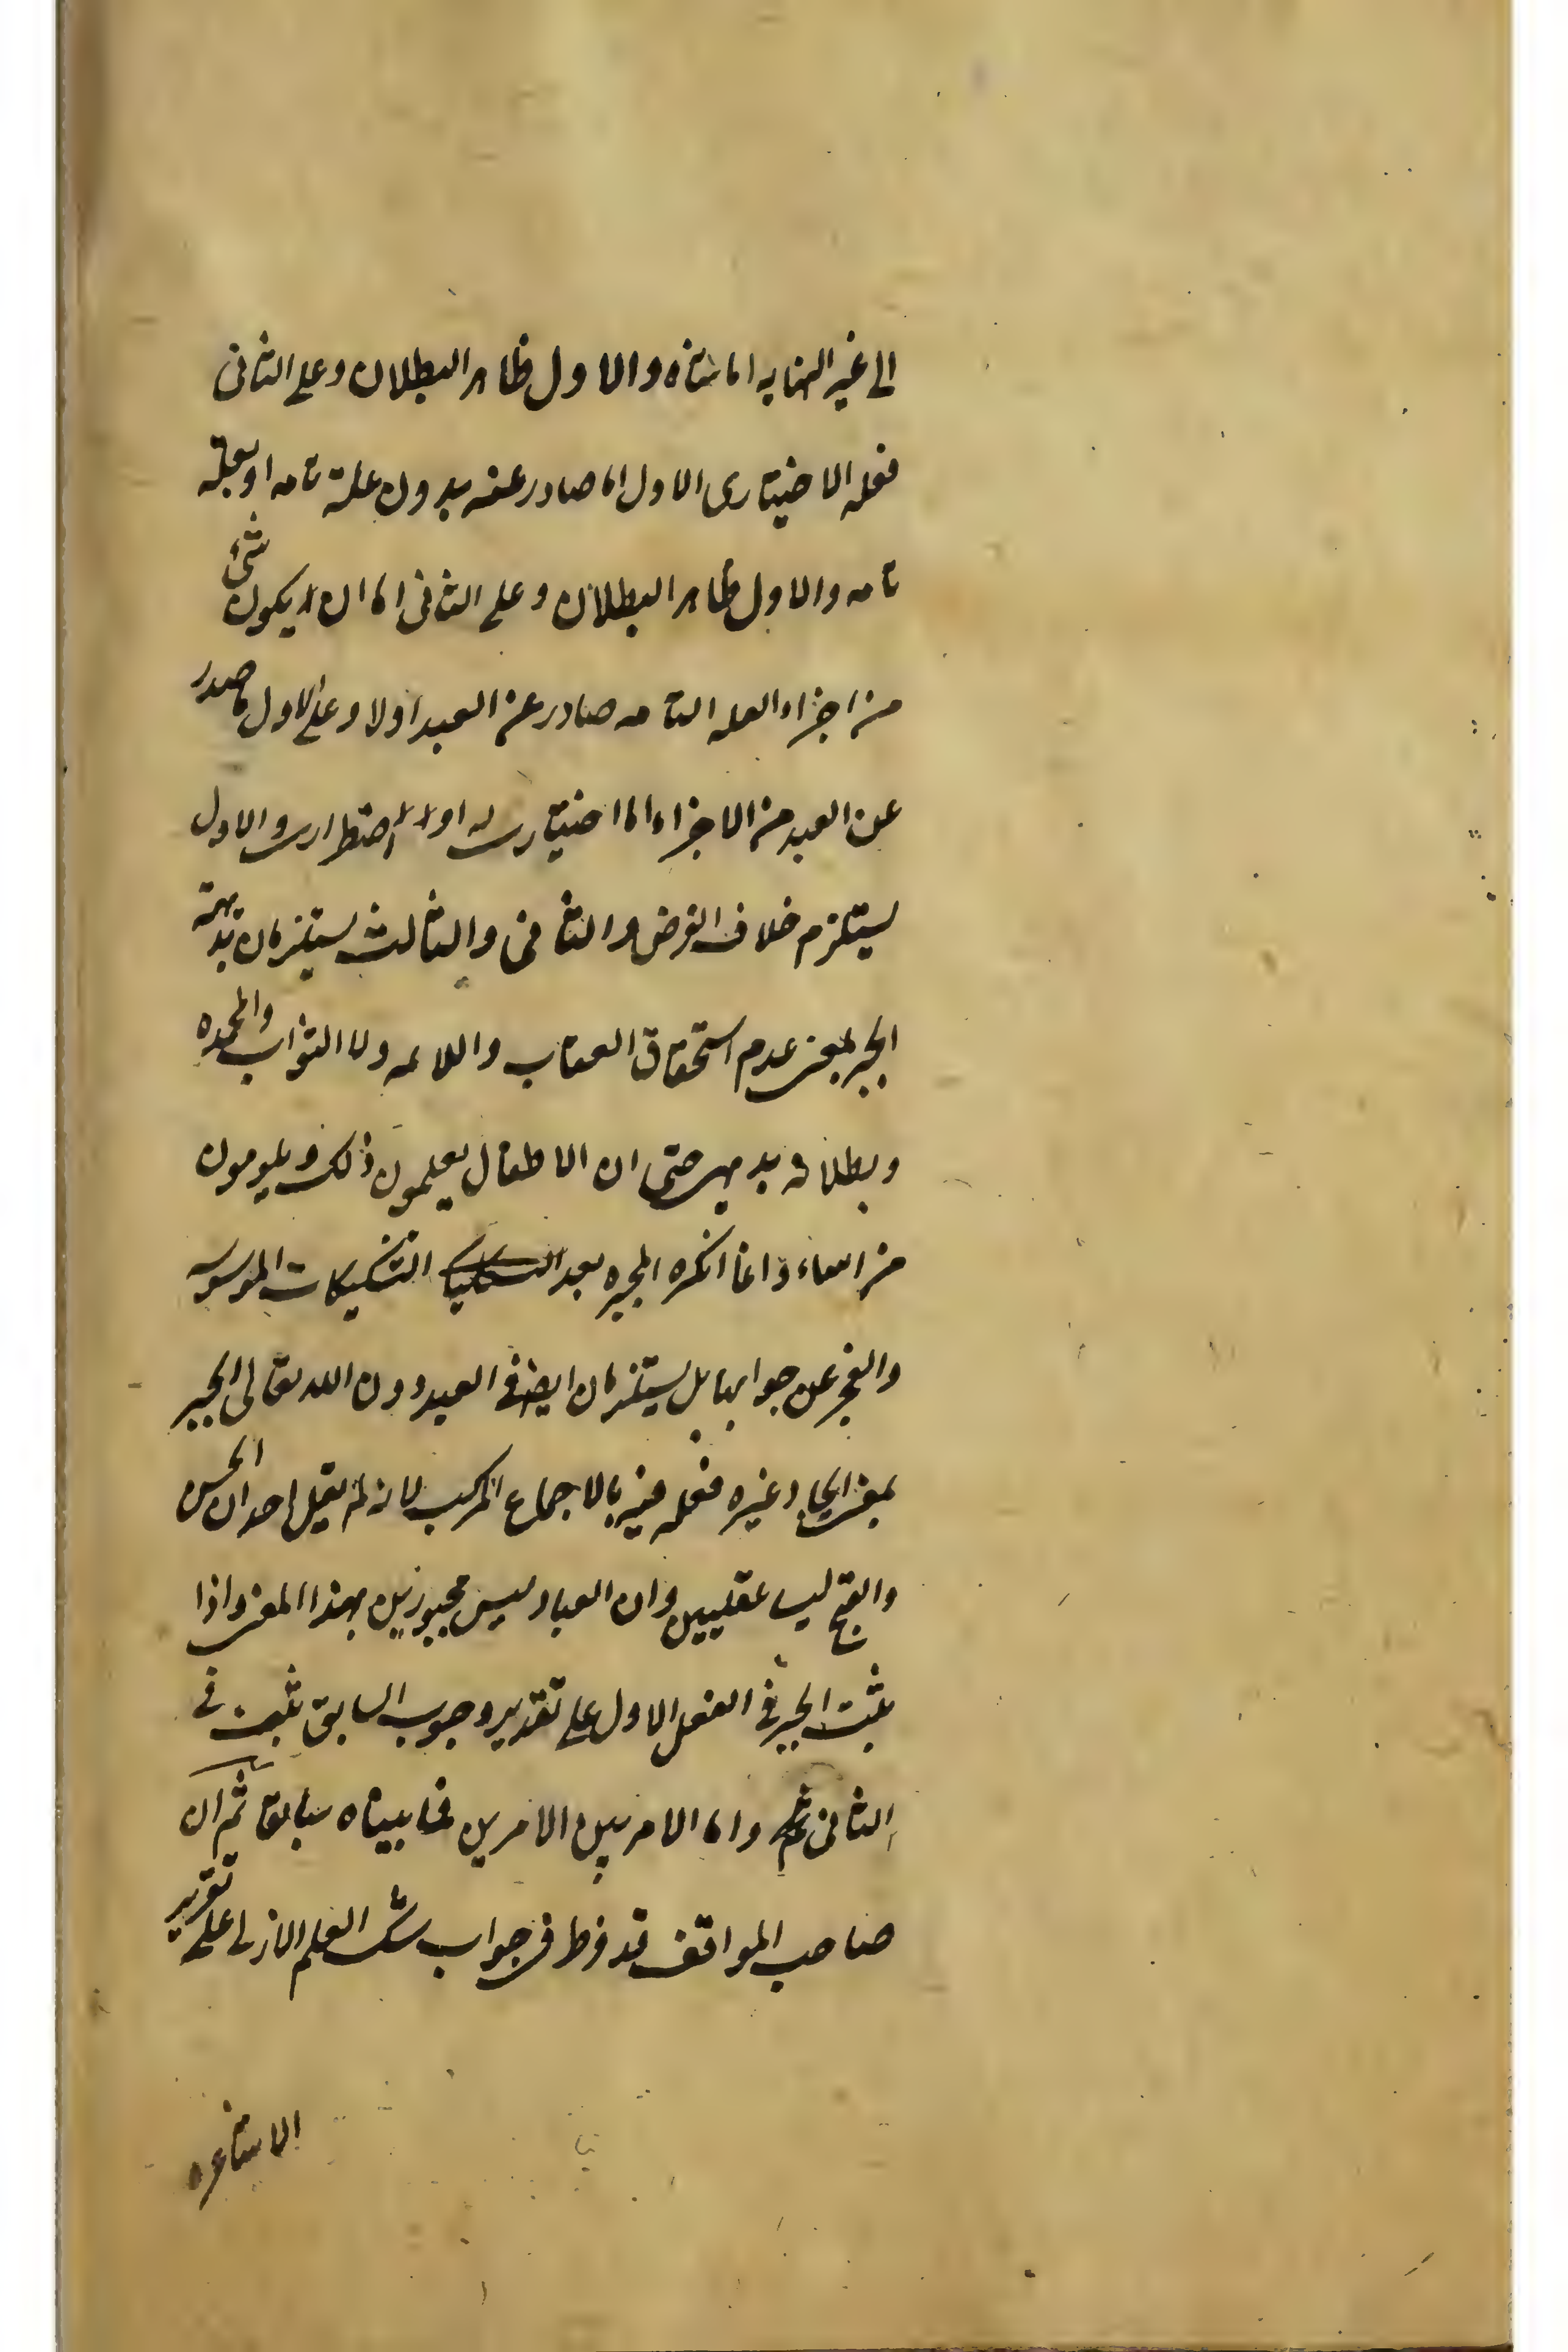 الى غير النهايه اما متناه والاول ظاهر البطلان وعلى الثانى
فعله الاختيارى الاول اما صادر عنه بدون علة تامه او بعلة
تامه والاول ظاهر البطلان وعلى الثانى اما ان يكون شئ
من اجزاء العله التامه صادر عن العبد اولا وعلى الاول ما صدر
عن العبد من الاجزاء اما اختيارى له او اضطرارى والاول
يستلزم خلاف الفرض والثانى والثالث يستلزمان بديهة
الجبر بمعنى عدم استحقاق العقاب واللائمه ولا الثواب والمحمده
وبطلانه بديهى حتى ان الاطفال يعلمون ذلك ويلومون
من اساء وانما انكره المجبره بعد التشكيكات الموسوسه
والعجز عن جوابها بل يستلزمان ايضا فى العبد دون الله تعالى الجبر
بمعنى ايجاد غيره فعله فيه بالاجماع المركب لانه لم يقل احد ان الحسن
والقبح ليسا عقليين وان العباد ليس مجبورين بهذا المعنى واذا
ثبت الجبر فى الفعل الاول على تقدير وجوب السابق ثبت فى
الثانى واما الامر بين الامرين فما بيناه سابقا ثم ان
صاحب المواقف قد فرط فى جواب شك العلم الازلى على تقرير
الاشاعره